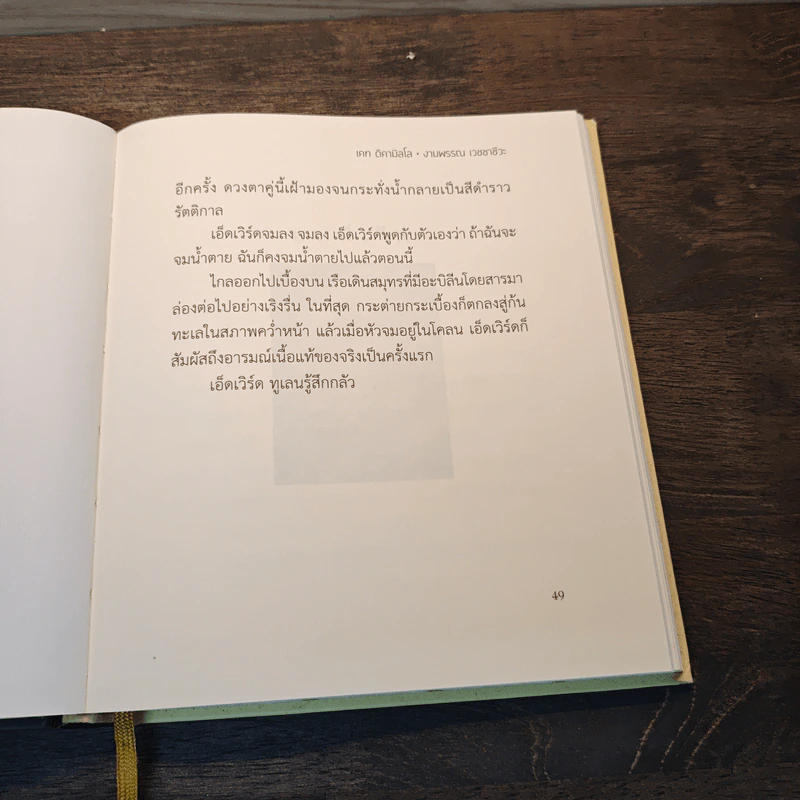 เคท ดิคามิลโล • งามพรรณ เวชชาชีวะ
อีกครั้ง ดวงตาคู่นี้เฝ้ามองจนกระทั่งน้ำกลายเป็นสีดำราว
รัตติกาล
เอ็ดเวิร์ดจมลง จมลง เอ็ดเวิร์ดพูดกับตัวเองว่า ถ้าฉันจะ
จมน้ำตาย ฉันก็คงจมน้ำตายไปแล้วตอนนี้
ไกลออกไปเบื้องบน เรือเดินสมุทรที่มีอะบิลีนโดยสารมา
ล่องต่อไปอย่างเริงรื่น ในที่สุด กระต่ายกระเบื้องก็ตกลงสู่ก้น
ทะเลในสภาพคว่ำหน้า แล้วเมื่อหัวจมอยู่ในโคลน เอ็ดเวิร์ดก็
สัมผัสถึงอารมณ์เนื้อแท้ของจริงเป็นครั้งแรก
เอ็ดเวิร์ด ทูเลนรู้สึกกลัว
49